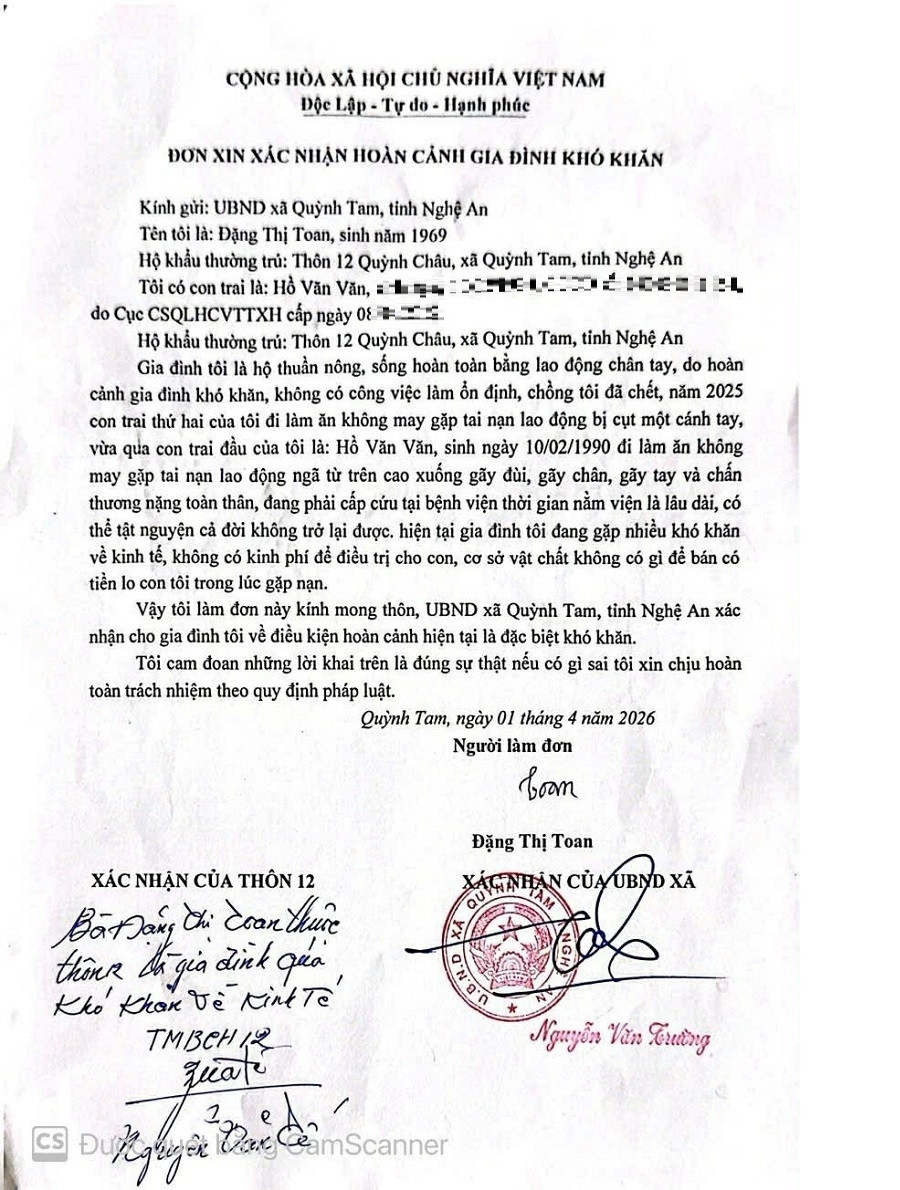 CỘNG HÒA XÃ HỘI CHỦ NGHĨA VIỆT NAM
Độc Lập - Tự do - Hạnh phúc
ĐƠN XIN XÁC NHẬN HOÀN CẢNH GIA ĐÌNH KHÓ KHĂN
Kính gửi: UBND xã Quỳnh Tam, tỉnh Nghệ An
Tên tôi là: Đặng Thị Toan, sinh năm 1969
Hộ khẩu thường trú: Thôn 12 Quỳnh Châu, xã Quỳnh Tam, tỉnh Nghệ An
Tôi có con trai là: Hồ Văn Văn,
do Cục CSQLHCVTTXH cấp ngày 08
Hộ khẩu thường trú: Thôn 12 Quỳnh Châu, xã Quỳnh Tam, tỉnh Nghệ An
Gia đình tôi là hộ thuần nông, sống hoàn toàn bằng lao động chân tay, do hoàn
cảnh gia đình khó khăn, không có công việc làm ổn định, chồng tôi đã chết, năm 2025
con trai thứ hai của tôi đi làm ăn không may gặp tai nạn lao động bị cụt một cánh tay,
vừa qua con trai đầu của tôi là: Hồ Văn Văn, sinh ngày 10/02/1990 đi làm ăn không
may gặp tai nạn lao động ngã từ trên cao xuống gãy đùi, gãy chân, gãy tay và chấn
thương nặng toàn thân, đang phải cấp cứu tại bệnh viện thời gian nằm viện là lâu dài, có
thể tật nguyện cả đời không trở lại được. hiện tại gia đình tôi đang gặp nhiều khó khăn
về kinh tế, không có kinh phí để điều trị cho con, cơ sở vật chất không có gì để bán có
tiền lo con tôi trong lúc gặp nạn.
Vậy tôi làm đơn này kính mong thôn, UBND xã Quỳnh Tam, tỉnh Nghệ An xác
nhận cho gia đình tôi về điều kiện hoàn cảnh hiện tại là đặc biệt khó khăn.
Tôi cam đoan những lời khai trên là đúng sự thật nếu có gì sai tôi xin chịu hoàn
toàn trách nhiệm theo quy định pháp luật.
Quỳnh Tam, ngày 01 tháng 4 năm 2026
Người làm đơn
Toan
Đặng Thị Toan
XÁC NHẬN CỦA THÔN 12
XÁC NHẬN CỦA UBND XÃ
Bà Đặng Thị Toan thuộc
thôn 12 là gia đình quá
khó khăn về kinh tế
TMBCH 12
U.B.N.D XÃ QUỲNH TAM NGHỆ AN
Nguyễn Văn Trường
Nguyễn
CS Được quét bằng CamScanner